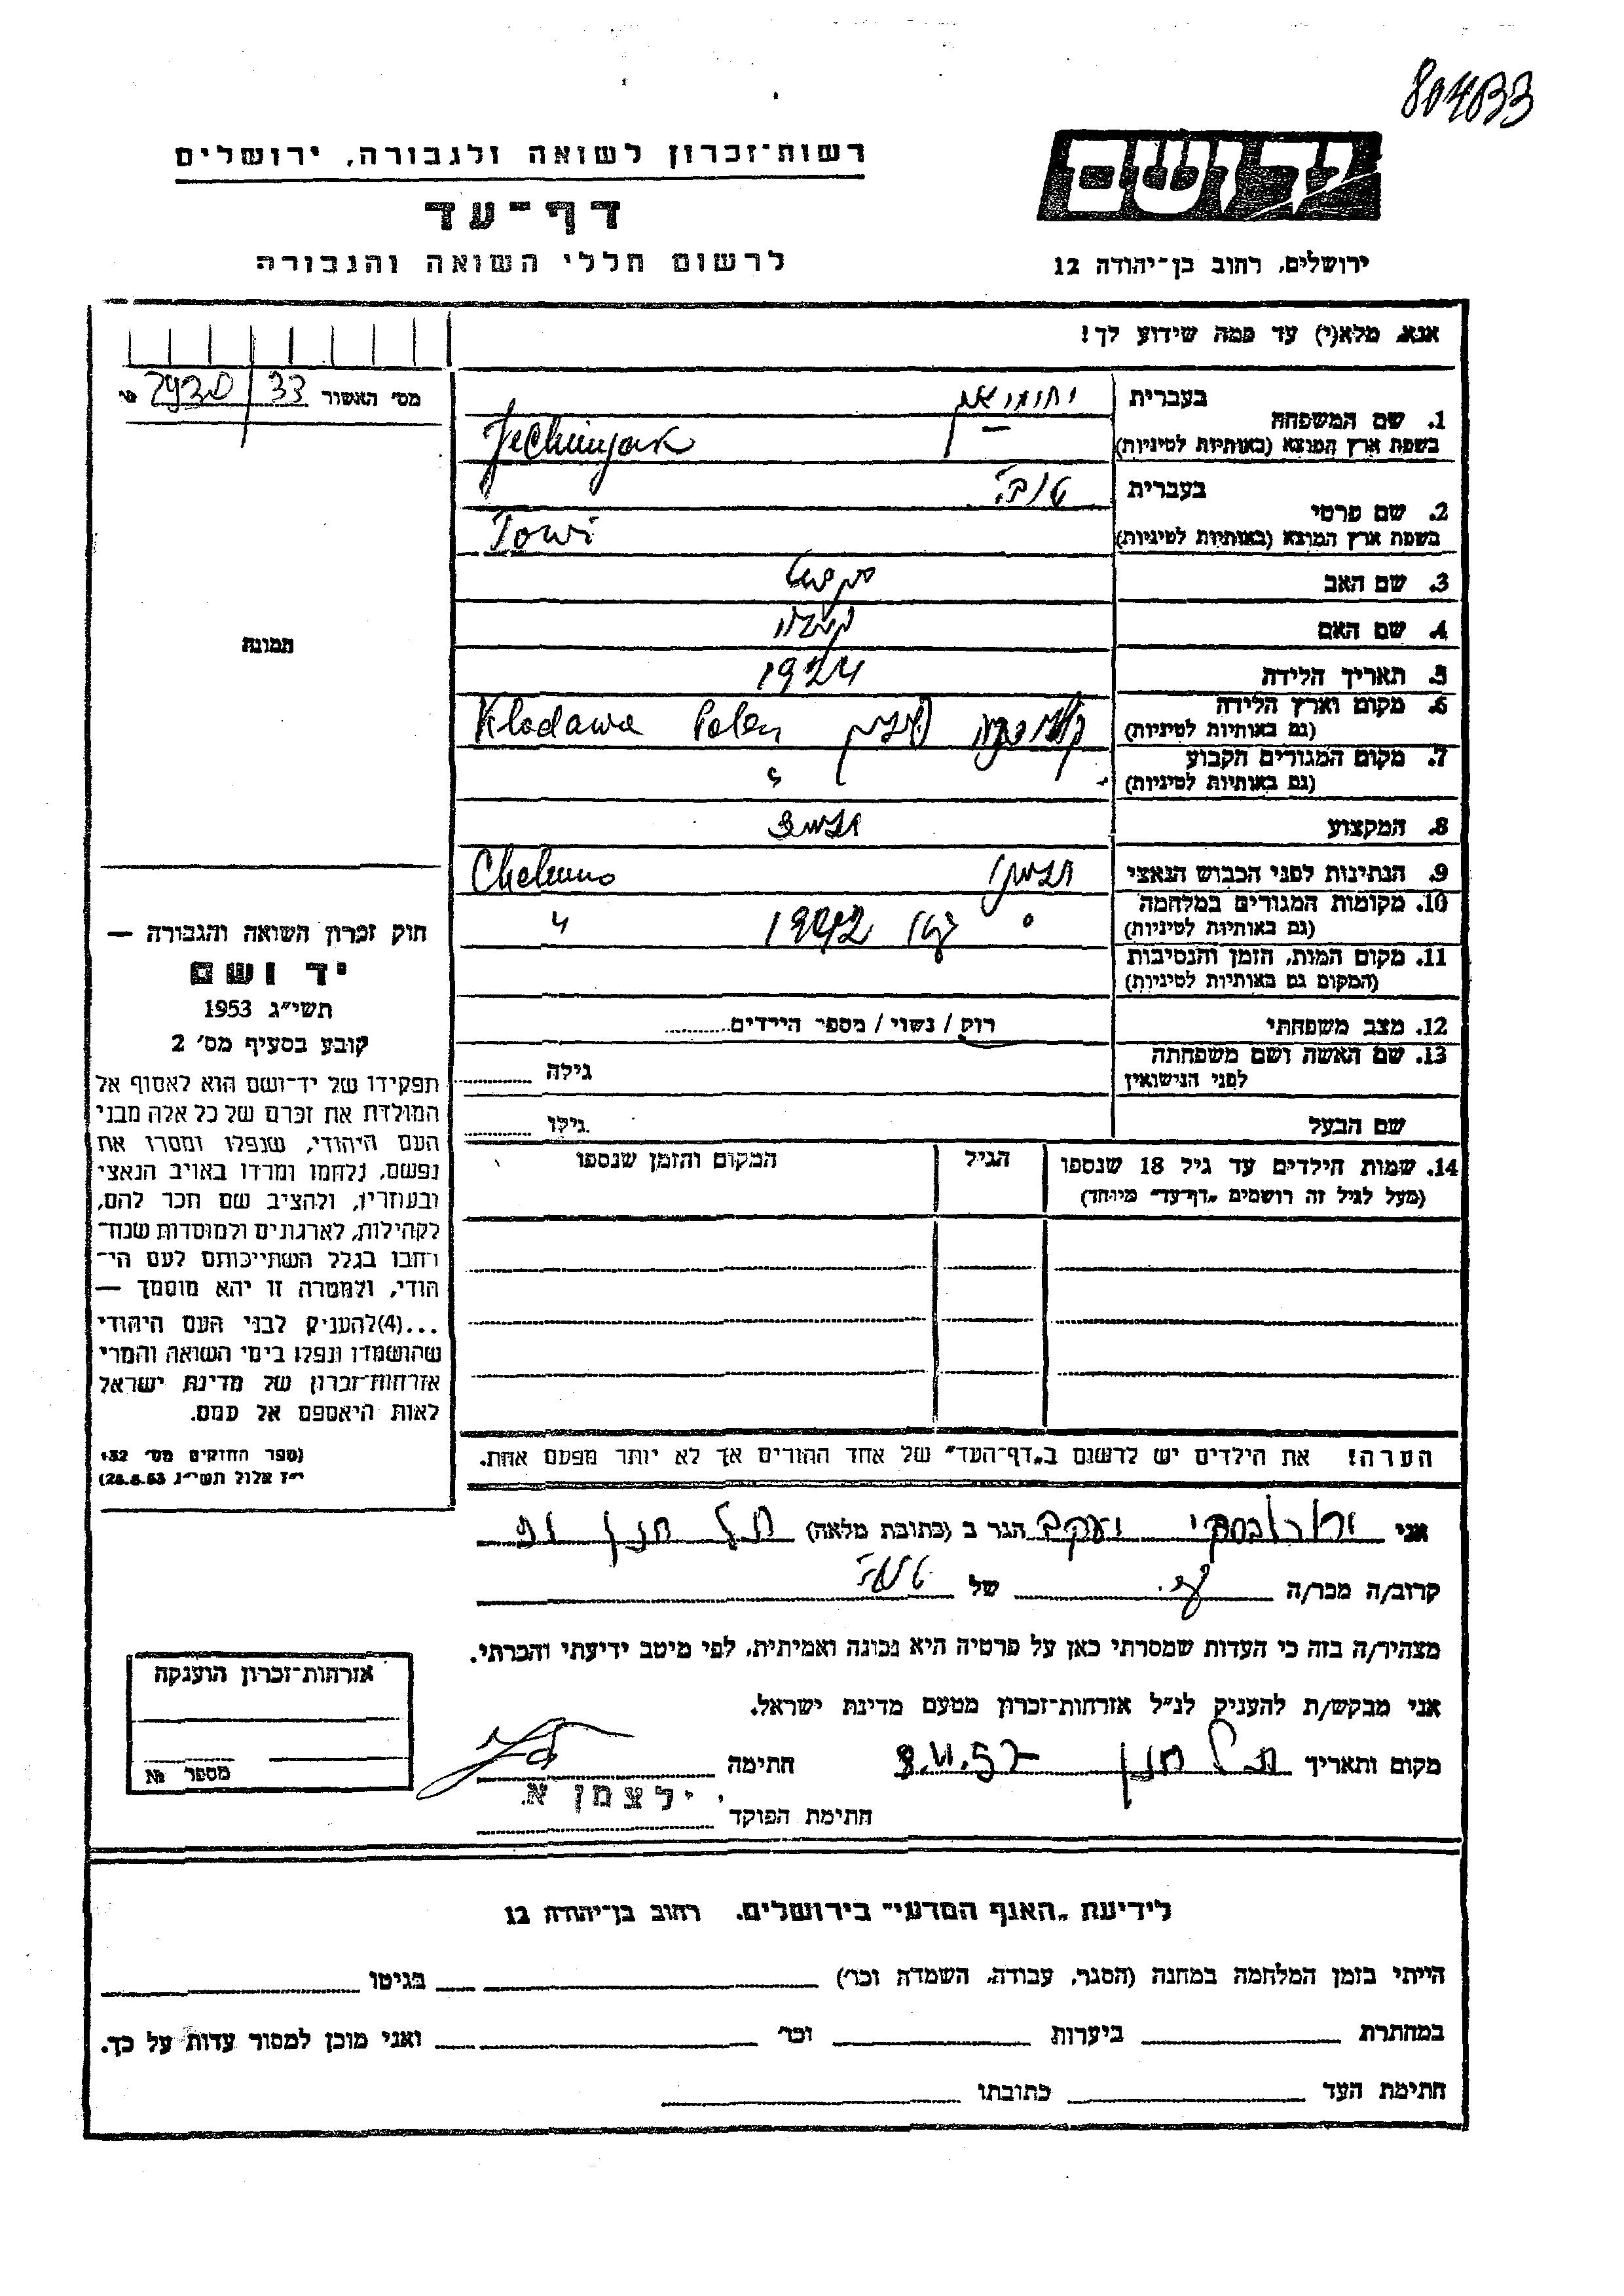 804033
רשות-זכרון לשואה ולגבורה, ירושלים
יד ושם
דף-עד
לרשום חללי השואה והגבורה
ירושלים, רחוב בן-יהודה 12
אנא, מלא(י) עד כמה שידוע לך!
מס' האשור 33
1. שם המשפחה
בעברית
בשפת ארץ המוצא (באותיות לטיניות) Jechimjak
2. שם פרטי
בעברית
בשפת ארץ המוצא (באותיות לטיניות) Towi
3. שם האב
4. שם האם
5. תאריך הלידה 1924
6. מקום וארץ הלידה
(גם באותיות לטיניות) פולין Polen Klodawa
7. מקום המגורים הקבוע
(גם באותיות לטיניות) "
8. המקצוע
9. הנתינות לפני הכבוש הנאצי Chelmno
10. מקומות המגורים במלחמה
(גם באותיות לטיניות) 1942 "
11. מקום המות, הזמן והנסיבות
(המקום גם באותיות לטיניות)
12. מצב משפחתי רוק / נשוי / מספר הילדים
13. שם האשה ושם משפחתה
לפני הנישואין גילה
שם הבעל גילו
14. שמות הילדים עד גיל 18 שנספו הגיל המקום והזמן שנספו
(מעל לגיל זה רושמים "דף-עד" מיוחד)
הערה! את הילדים יש לרשום ב"דף-העד" של אחד ההורים אך לא יותר מפעם אחת.
תמונה
חוק זכרון השואה והגבורה —
יד ושם
תשי"ג 1953
קובע בסעיף מס' 2
תפקידו של יד-ושם הוא לאסוף אל
המולדת את זכרם של כל אלה מבני
העם היהודי, שנפלו ומסרו את
נפשם, נלחמו ומרדו באויב הנאצי
ובעוזריו, ולהציב שם וזכר להם,
לקהילות, לארגונים ולמוסדות שנח-
רבו בגלל השתייכותם לעם הי-
הודי, ולמטרה זו יהא מוסמך —
...(4)להעניק לבני העם היהודי
שהושמדו ונפלו בימי השואה והמרי
אזרחות-זכרון של מדינת ישראל
לאות היאספם אל עמם.
(ספר החוקים מס' 132
י"ז אלול תשי"ג 28.8.53)
אני יעקב הגר ב (כתובת מלאה) תל חנן
קרוב/ה מכר/ה של
מצהיר/ה בזה כי העדות שמסרתי כאן על פרטיה היא נכונה ואמיתית, לפי מיטב ידיעתי והכרתי.
אני מבקש/ת להעניק לנ"ל אזרחות-זכרון מטעם מדינת ישראל.
מקום ותאריך תל חנן חתימה
חתימת הפוקד
אזרחות-זכרון הוענקה
מספר №
לידיעת "האגף המדעי" בירושלים. רחוב בן-יהודה 12
הייתי בזמן המלחמה במחנה (הסגר, עבודה, השמדה וכר') בגיטו
במחתרת ביערות וכר' ואני מוכן למסור עדות על כך.
חתימת העד כתובתו